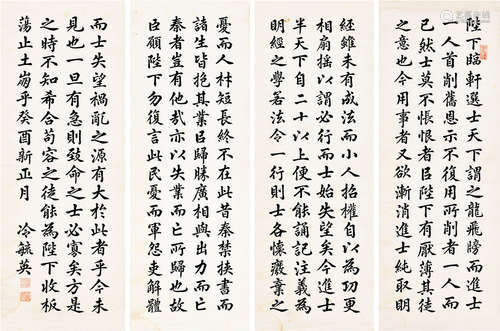 陛下臨軒選士天下謂之龍飛牓而進士
一人首削舊恩示不復用所削者一人而
已然士莫不悵恨者㠯陛下有厭薄其徒
之意也今用事者又欲漸消進士純取明
經雖未有成法而小人招權自以為功更
相扇搖以謂必行而士始失望矣今進士
半天下自二十以上便不能誦記注義為
明經之學若法令一行則士各懷廢棄之
憂而人材短長終不在此昔秦禁挾書而
諸生皆抱其業㠯歸勝廣相與出力而亡
秦者豈有他哉亦以失業而亡所歸也故
臣願陛下勿復言此民憂而軍怨吏解體
而士失望禍亂之源有大於此者乎今未
見也一旦有急則致命之士必寡矣方是
之時不知希合苟容之徒能為陛下收板
蕩止土崩乎癸酉新正月 冷毓英